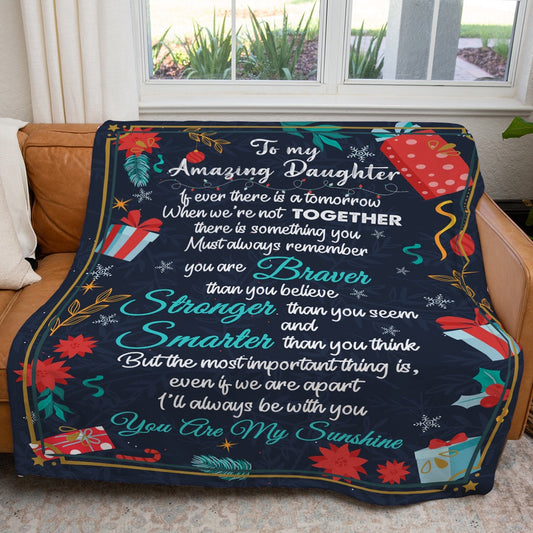 To my
Amazing Daughter
If ever there is a tomorrow
When we're not TOGETHER
there is something you
Must always remember
you are Braver
than you believe
Stronger than you seem
and
Smarter than you think
But the most important thing is,
even if we are apart
I'll always be with you
You Are My Sunshine